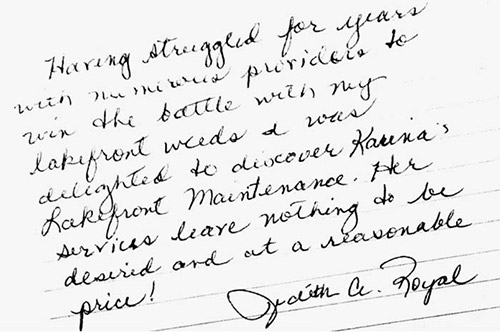 Having struggled for years
with numerous providers to
win the battle with my
lakefront weeds I was
delighted to discover Karina's
Lakefront Maintenance. Her
services leave nothing to be
desired and at a reasonable
price!
Judith A. Royal